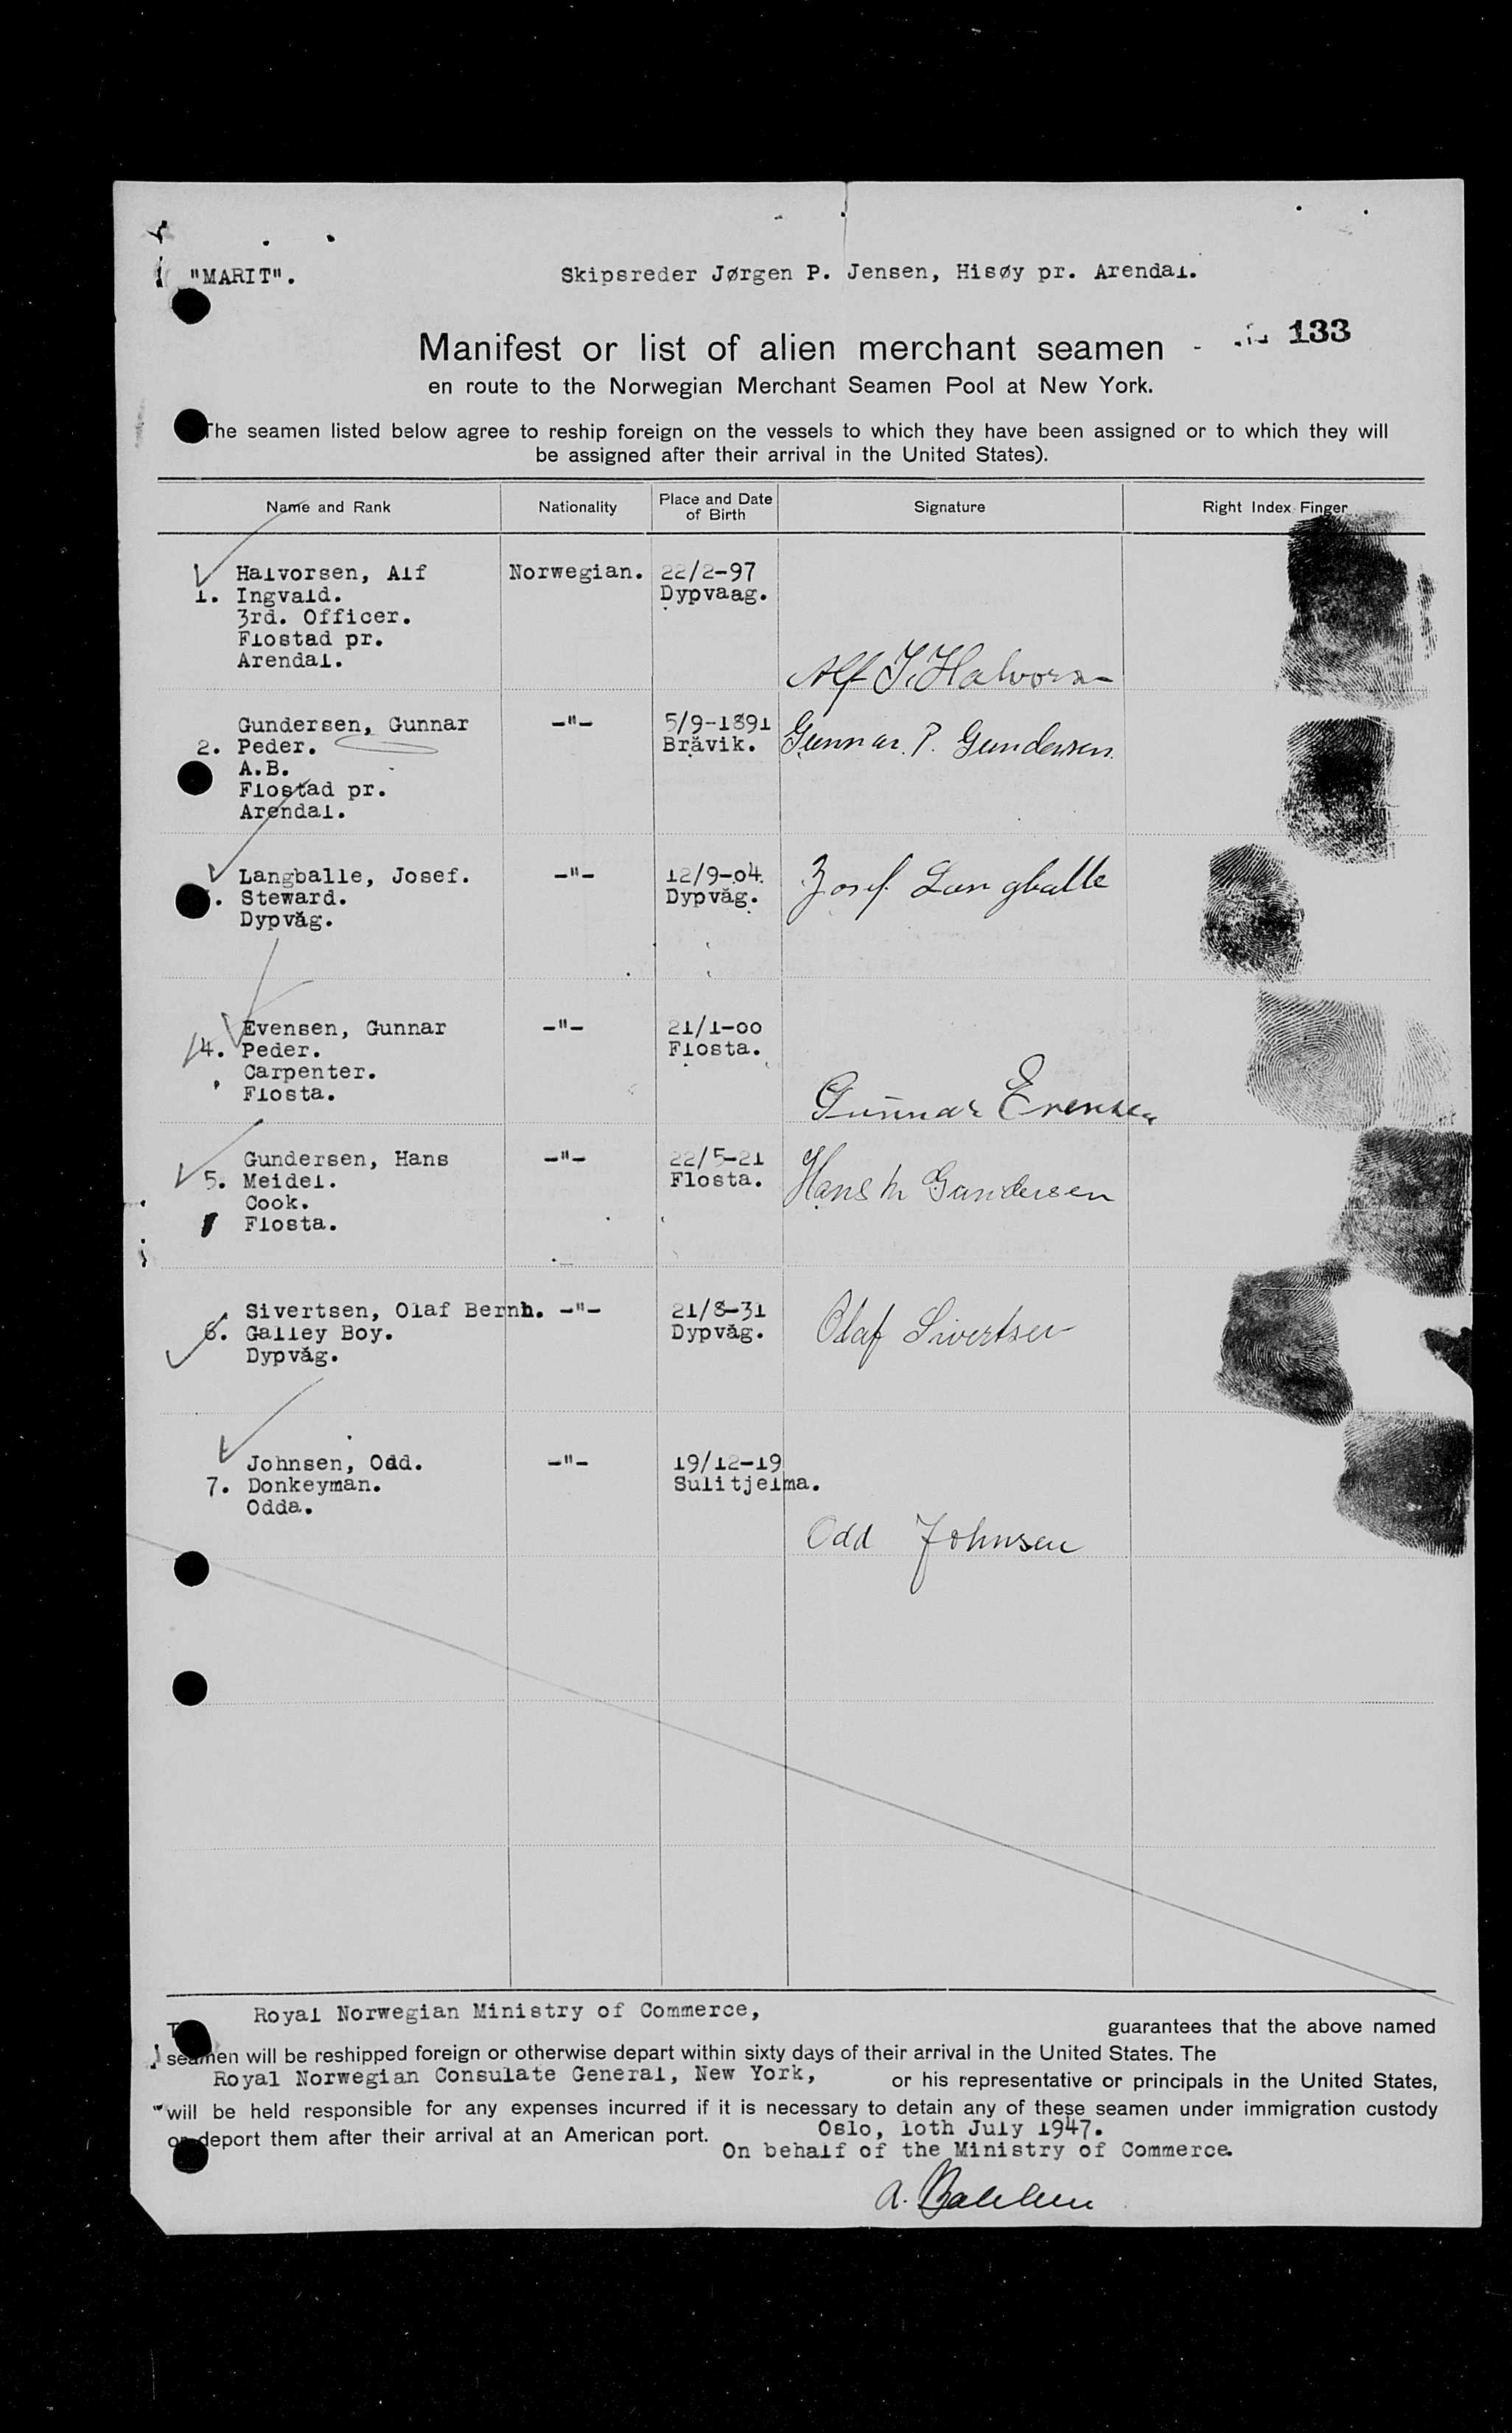 "MARIT".
Skipsreder Jørgen P. Jensen, Hisøy pr. Arendal.
133
Manifest or list of alien merchant seamen
en route to the Norwegian Merchant Seamen Pool at New York.
The seamen listed below agree to reship foreign on the vessels to which they have been assigned or to which they will
be assigned after their arrival in the United States).
Name and Rank Nationality Place and Date of Birth Signature Right Index Finger
Halvorsen, Alf Norwegian. 22/2-97
1. Ingvald. Dypvaag.
3rd. Officer.
Flostad pr.
Arendal.
Alf I. Halvorsen
Gundersen, Gunnar -"- 5/9-1891
2. Peder. Bråvik. Gunnar. P. Gundersen.
A.B.
Flostad pr.
Arendal.
Langballe, Josef. -"- 12/9-04. Josef Langballe
. Steward. Dypvåg.
Dypvåg.
Evensen, Gunnar -"- 21/1-00
4. Peder. Flosta.
Carpenter.
Flosta.
Gunnar Evensen
Gundersen, Hans -"- 22/5-21
5. Meidel. Flosta. Hans M Gundersen
Cook.
Flosta.
Sivertsen, Olaf Bernh. -"- 21/8-31
6. Galley Boy. Dypvåg. Olaf Sivertsen
Dypvåg.
Johnsen, Odd. -"- 19/12-19
7. Donkeyman. Sulitjelma.
Odda.
Odd Johnsen
Royal Norwegian Ministry of Commerce,
guarantees that the above named
seamen will be reshipped foreign or otherwise depart within sixty days of their arrival in the United States. The
Royal Norwegian Consulate General, New York, or his representative or principals in the United States,
will be held responsible for any expenses incurred if it is necessary to detain any of these seamen under immigration custody
or deport them after their arrival at an American port. Oslo, 10th July 1947.
On behalf of the Ministry of Commerce.
A.